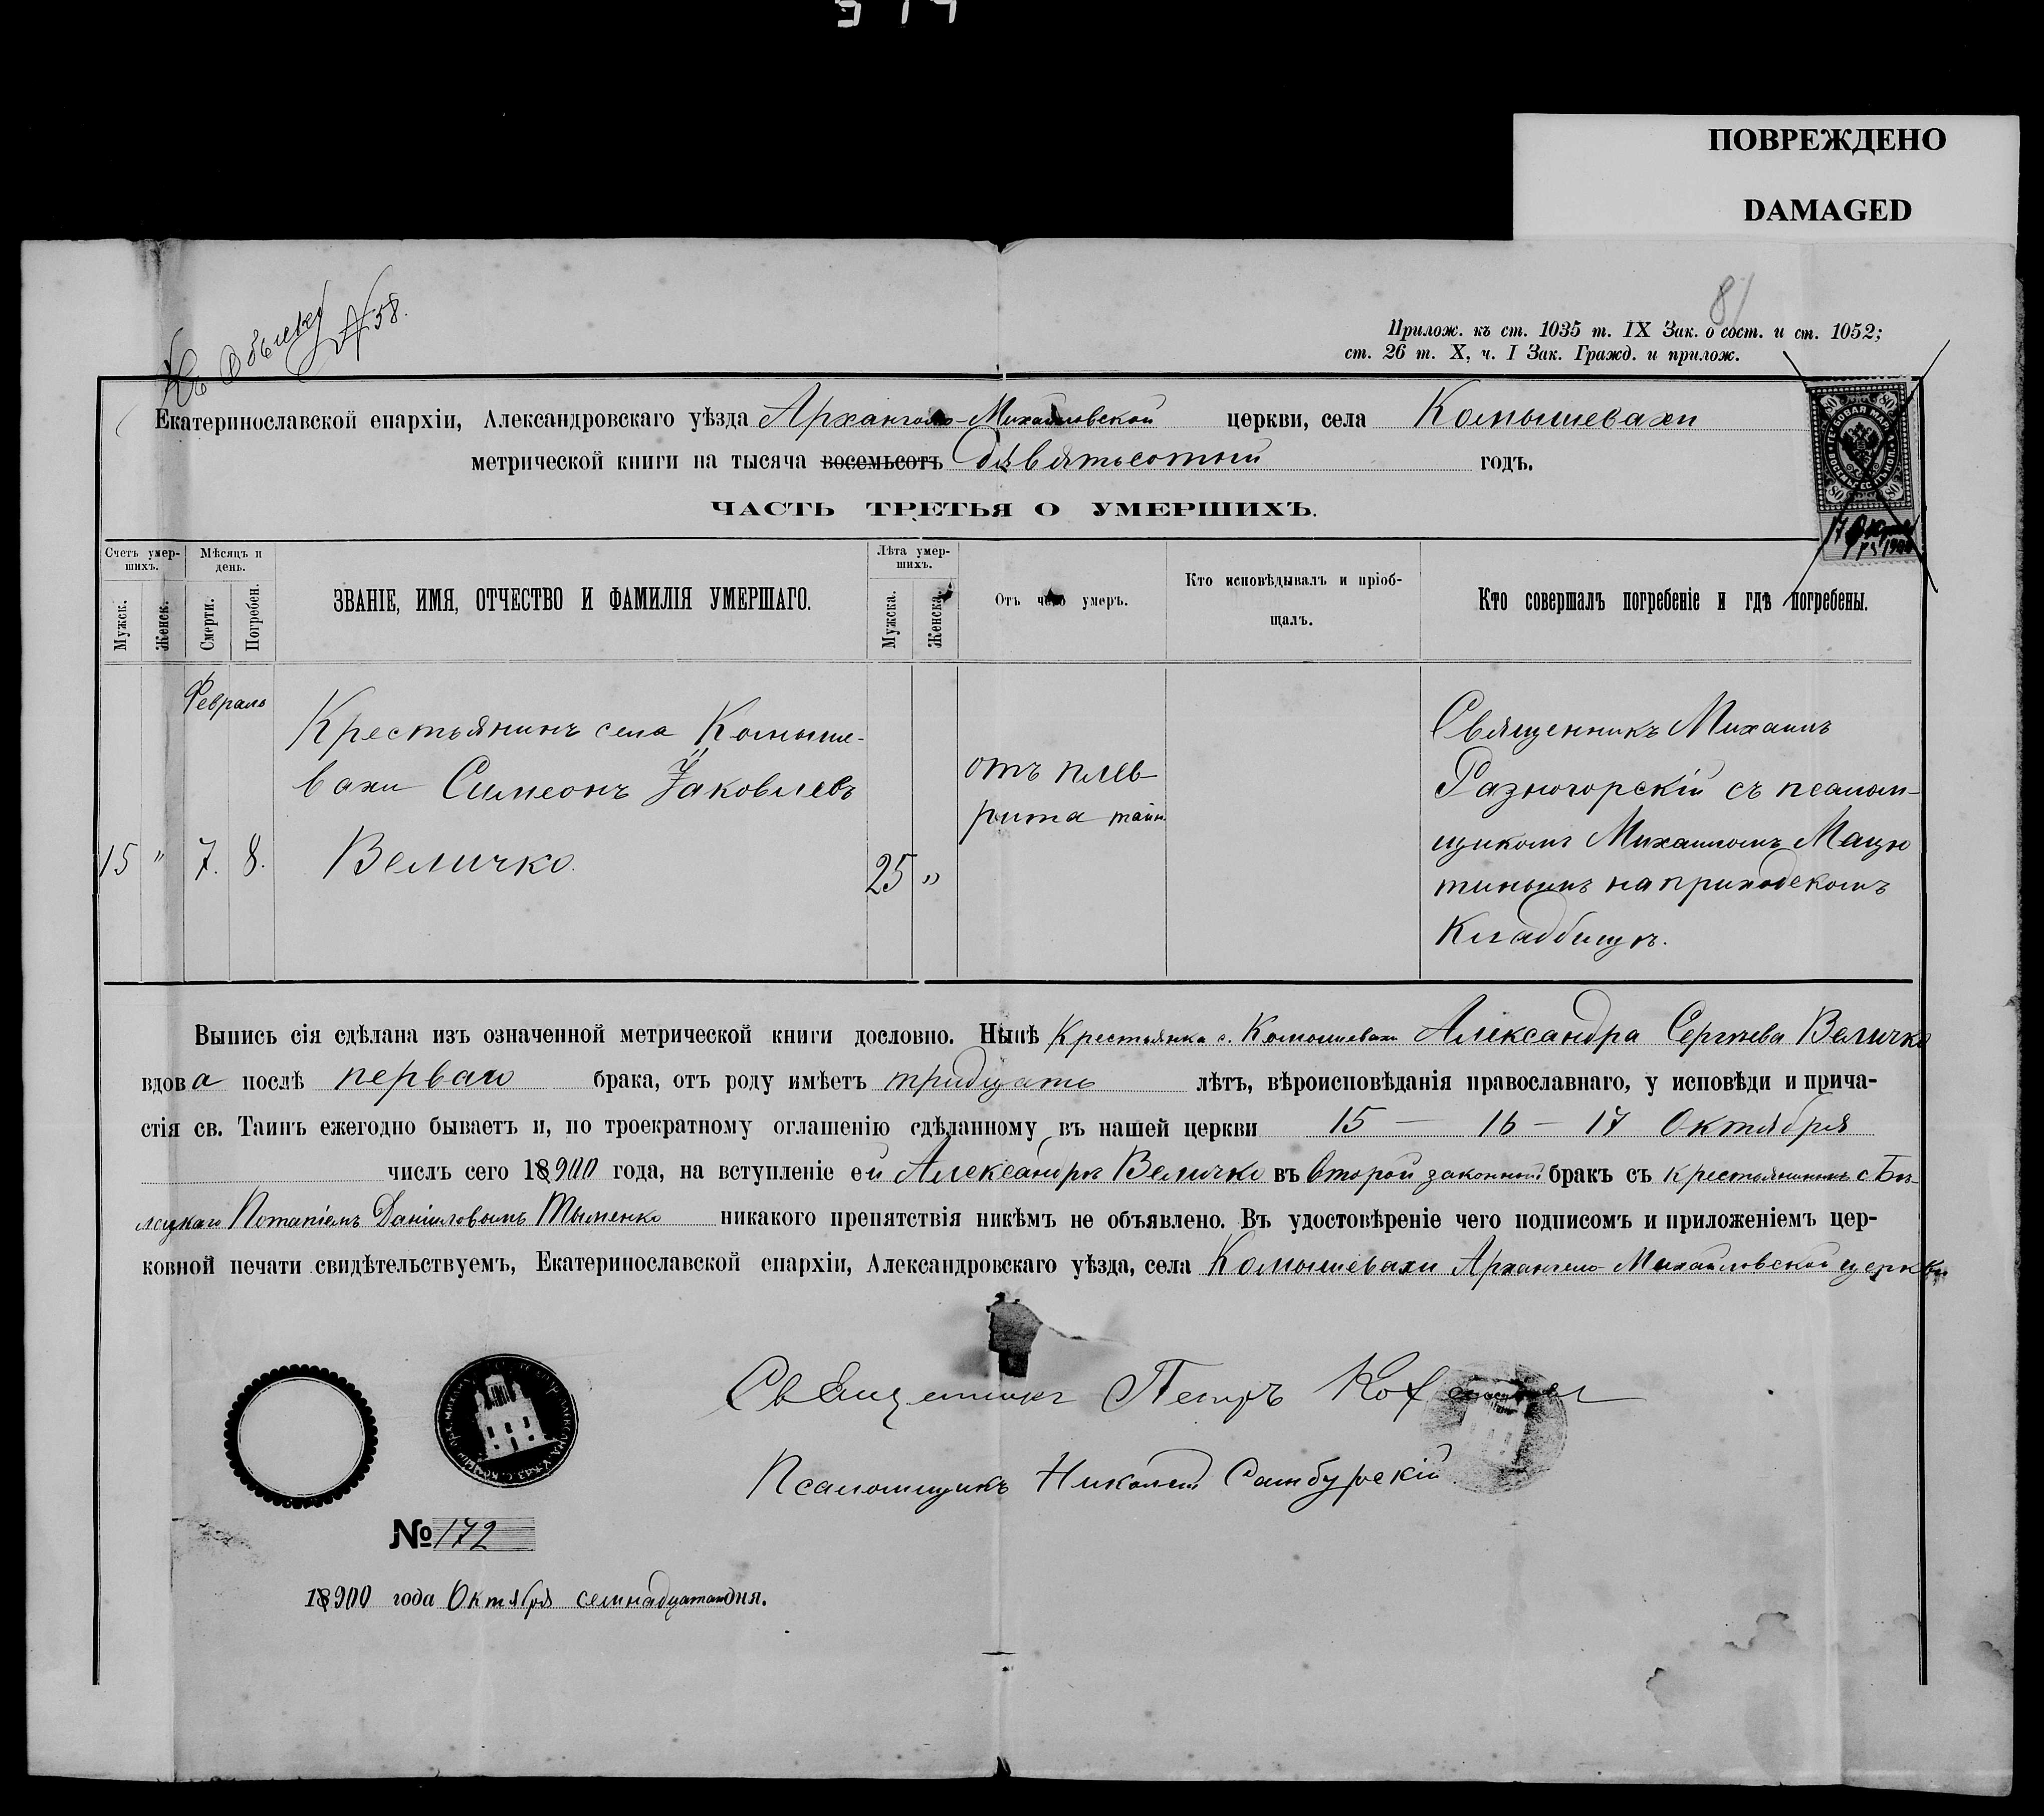 ПОВРЕЖДЕНО
DAMAGED
81
Къ Обыску № 58.
Прилож. къ ст. 1035 т. IX Зак. о сост. и ст. 1052;
ст. 26 т. X, ч. I Зак. Гражд. и прилож.
Екатеринославской епархіи, Александровскаго уѣзда Архангело-Михайловской церкви, села Комышевахи
метрической книги на тысяча восемьсотъ девятьсотый годъ.
80 80
80 80
17 Октября 1900
ЧАСТЬ ТРЕТЬЯ О УМЕРШИХЪ.
Счетъ умершихъ. Мѣсяцъ и день. ЗВАНІЕ, ИМЯ, ОТЧЕСТВО И ФАМИЛІЯ УМЕРШАГО. Лѣта умершихъ. Отъ чего умеръ. Кто исповѣдывалъ и пріобщалъ. Кто совершалъ погребеніе и гдѣ погребены.
Мужск. Женск. Смерти. Погребен. Мужска. Женска.
Февраль
Крестьянинъ села Комыше-
вахи Симеонъ Іаковлевъ
Величко.
15 " 7. 8.
25 "
отъ плев-
рита
Священникъ Михаилъ
Разногорскій съ псалом-
щикомъ Михаиломъ Мацю
тинымъ на приходскомъ
кладбищѣ.
Выпись сія сдѣлана изъ означенной метрической книги дословно. Нынѣ крестьянка с. Комышевахи Александра Сергѣева Величко
вдова послѣ перваго брака, отъ роду имѣетъ тридцать лѣтъ, вѣроисповѣданія православнаго, у исповѣди и прича-
стія св. Таинъ ежегодно бываетъ и, по троекратному оглашенію сдѣланному въ нашей церкви 15 — 16 — 17 Октября
числъ сего 1900 года, на вступленіе ей Александрѣ Величко въ второй законный бракъ съ крестьяниномъ с. Бѣ-
лецкаго Потапіемъ Даніиловымъ Тыменко никакого препятствія никѣмъ не объявлено. Въ удостовѣреніе чего подписомъ и приложеніемъ цер-
ковной печати свидѣтельствуемъ, Екатеринославской епархіи, Александровскаго уѣзда, села Комышевахи Архангело-Михайловской церкви
Священникъ Петръ
Псаломщикъ Николай Самбурскій
№ 172
1900 года Октября семнадцатаго дня.